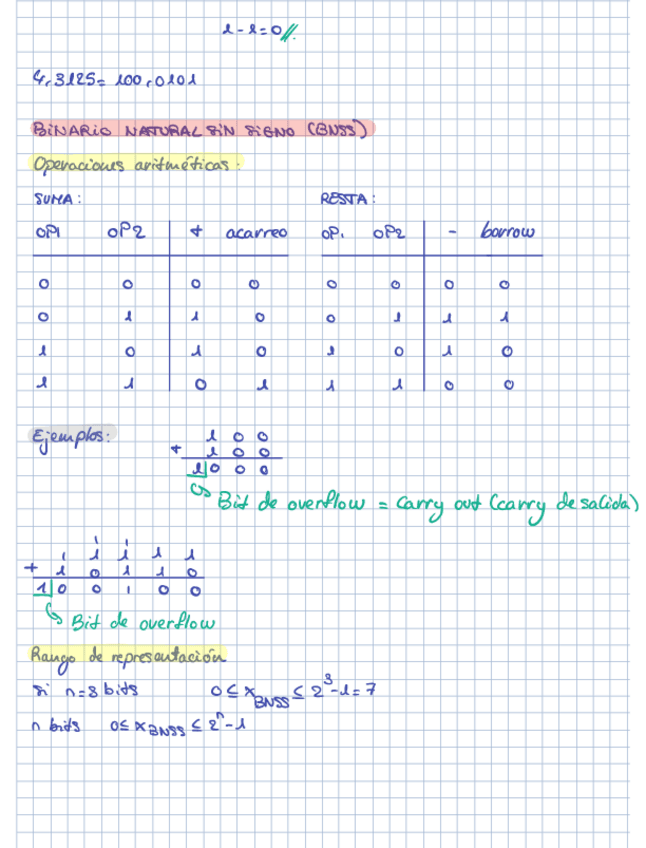 1-1=0//
4,3125= 100,0101
BINARIO NATURAL SIN SIGNO (BNSS)
Operaciones aritméticas:
SUMA: RESTA:
OP1 OP2 + acarreo OP1 OP2 - borrow
0 0 0 0 0 0 0 0
0 1 1 0 0 1 1 1
1 0 1 0 1 0 1 0
1 1 0 1 1 1 0 0
Ejemplos: 1 0 0
+ 1 0 0
1 0 0 0
Bit de overflow = Carry out (carry de salida)
1 1
1 1 1 1 1
+ 1 0 1 1 0
1 0 0 1 0 0
Bit de overflow
Rango de representación
si n=3 bits 0≤ x BNSS ≤ 2³-1=7
n bits 0≤ x BNSS ≤ 2ⁿ-1